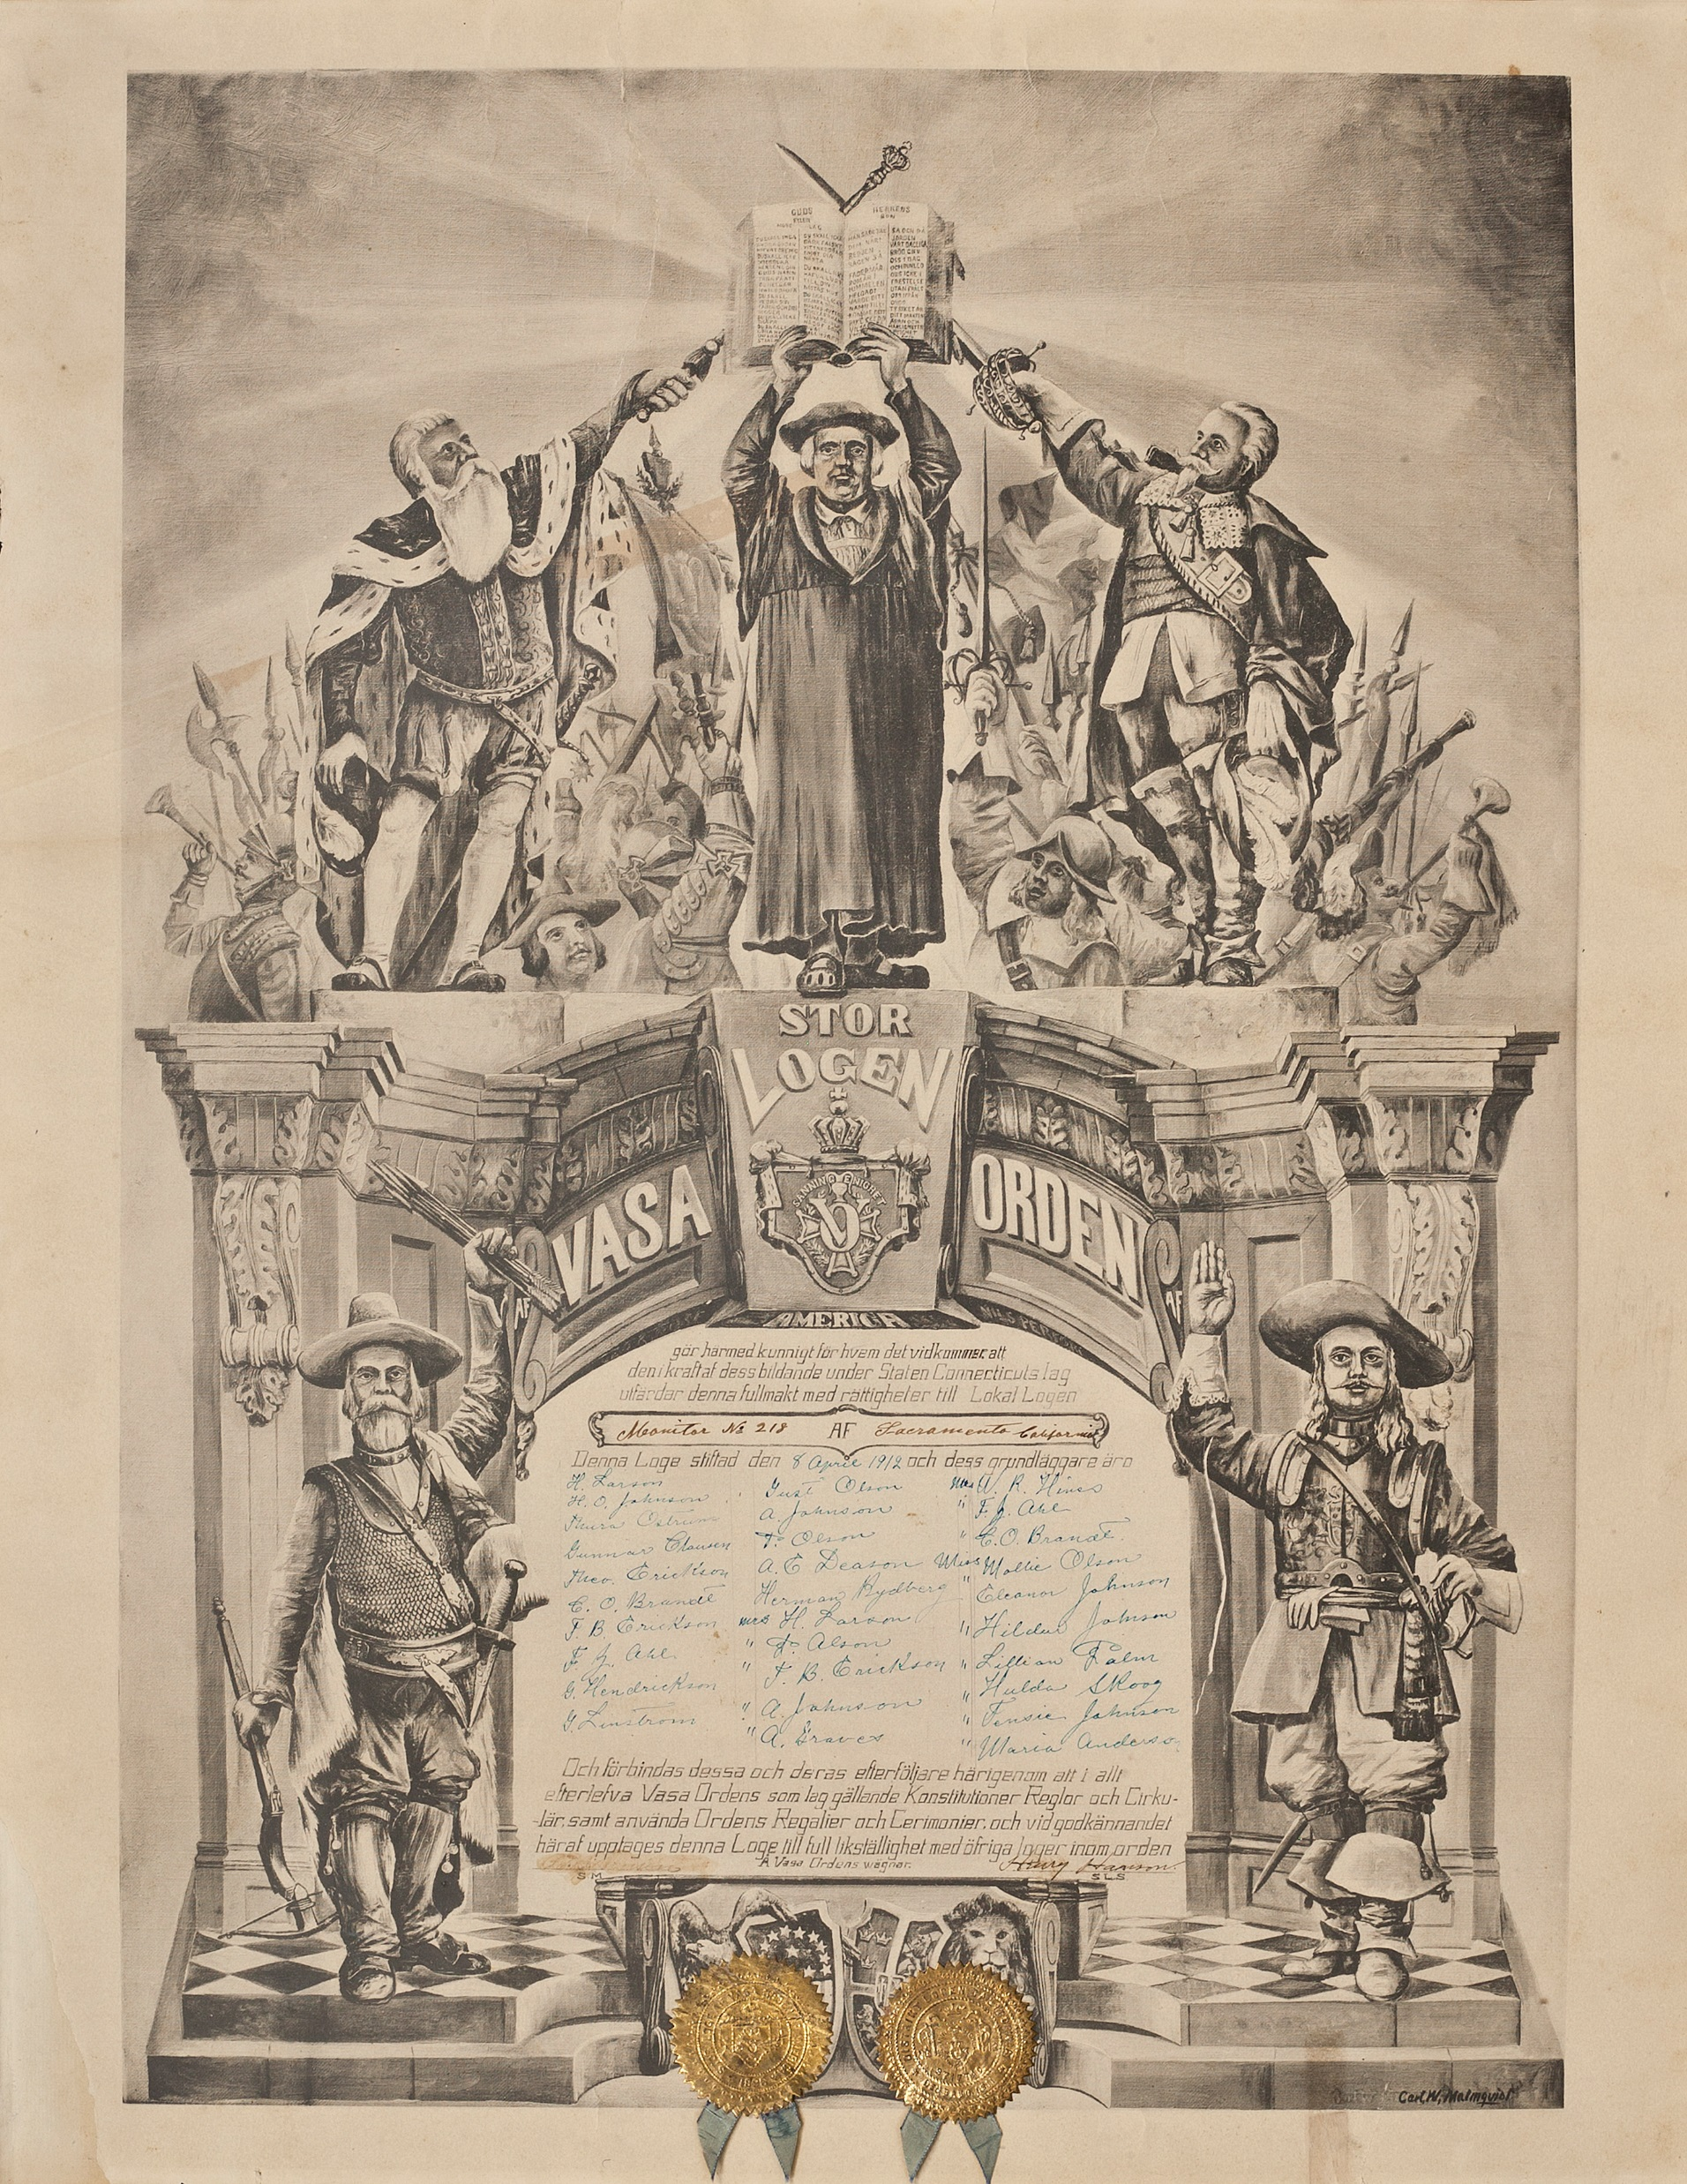 GUDS
HERRENS
BÖN
STOR
LOGEN
SANNING ENIGHET
V
VASA
ORDEN
AF
AF
AMERICA
gör härmed kunnigt för hvem det vidkommer att
den i kraft af dess bildande under Staten Connecticuts lag
utfärdar denna fullmakt med rättigheter till Lokal Logen
Monitor No 218 AF Sacramento California
Denna Loge stiftad den 8 April 1912 och dess grundläggare äro
H. Larson Gust Olson Mrs W. R. Hines
H. O. Johnson A. Johnson " F. J. Ahl
Thure F. Olson " C. O. Brandt
Gunnar Clausen A. E. Deason Miss Mollie Olson
Theo. Erickson Herman Rydberg " Eleanor Johnson
C. O. Brandt Mrs H. Larson " Hildur Johnson
F. B. Erickson " F. Olson " Lillian Palm
F. J. Ahl " F. B. Erickson " Hulda Skoog
G. Hendrickson " A. Johnson " Johnson
G. Linstrom " A. Graves " Maria Anderso
Och förbindas dessa och deras efterföljare härigenom att i allt
efterlefva Vasa Ordens som lag gällande Konstitutioner Reglor och Cirku-
-lär, samt använda Ordens Regalier och Cerimonier, och vid godkännandet
häraf upptages denna Loge till full likställighet med öfriga loger inom orden
Å Vasa Ordens wägnar.
Henry Hanson.
S M S L S
Carl. W. Malmquist